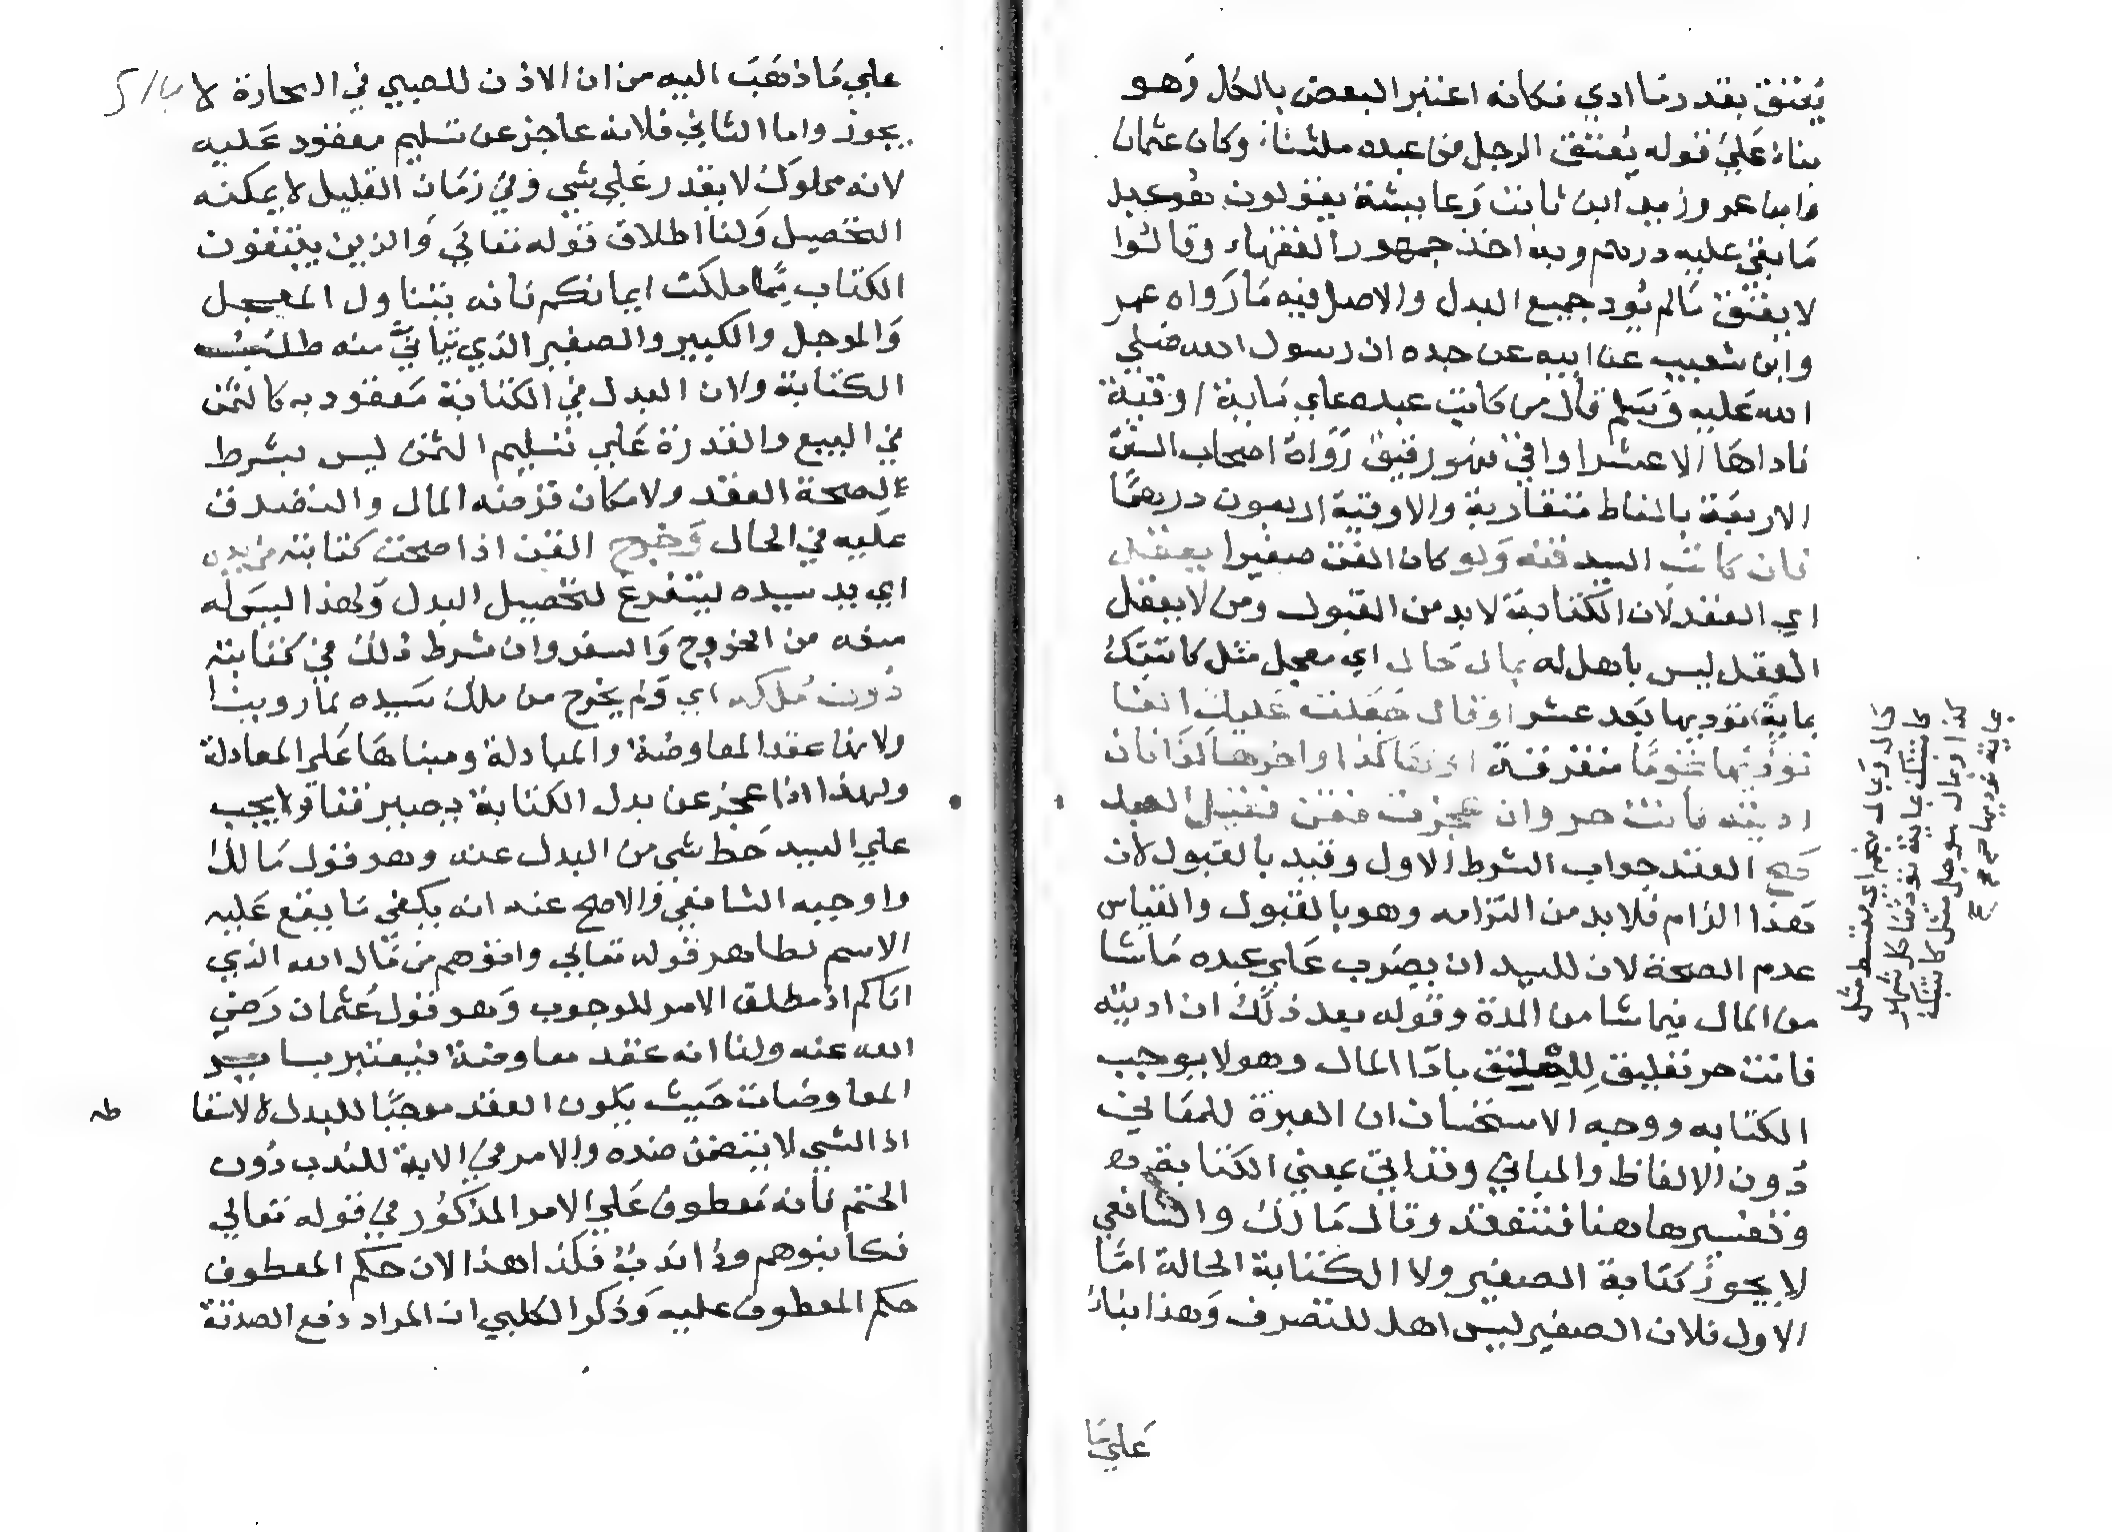 يُعتق بقدر ما ادي فكانه اعتبر البعض بالكل وَهو
بناءً عَليَ قوله يُعتق الرجل من عبده ما شاء وكان عثمان
وابن عمر وزيد ابن ثابت وَعايشة يقولون هو عبد
مَا بقي عليه درهم وبه اخذ جمهور الفقهاء وقالوا
لا يعتق مَا لم يُود جميع البدل والاصل فيه مَا رَواه عمر
وابن شعيب عن ابيه عن جده ان رسول الله صَلي
الله عَليه وَسَلم قال من كاتب عبده علي مَاية اوقية
فاداهَا الا عشر اواقٍ فهو رقيق رَوَاهُ اصحاب السنن
الاربعَة بالفاظ متقاربة والاوقية اربعون درهمًا
فان كاتب السيد قنه وَلو كان القن صغيرا يعقل
اي العقد لان الكتابة لا بد من القبول ومن لا يعقل
العقد ليس باهل له بمال حَال اي معجل مثل كاتبتك
بمايَة تؤديها بَعد عشر او قال جَعَلت عَليك الفا
تؤديها نجومًا متفرقة اولهَا كذا واخرها كذا فان
اديته فانت حر وان عجزت فقن فقبل العبد
صح العقد جواب الشرط الاول وقيد بالقبول لان
هَذا الزام فلا بد من التزامه وهو بالقبول والقياس
عدم الصحة لان للسيد ان يضرب عَلي عبده مَا شا
من المال فيما شا من المدة وقوله بعد ذلك ان اديته
فانت حر تعليق للعتق باداَ المال وهو لا يوجب
الكتابه ووجه الاستحسان ان العبرة للمعَاني
دُون الالفاظ والمباني وقد اتي بمعني الكتابة
وتفسيرها هنا فتنعقد وقال مَالك والشافعي
لا يجوز كتابة الصغير ولا الكتابة الحالة امّا
الاول فلان الصغير ليس اهلا للتصرف وَهذا بناءً
عَلي مَا
حَال وَبمال منجم اي مقسط مثل
كاتبتك بماية تؤديها كل شهر
كذا او بمال موجل مثل كاتبتك
بماية تؤديها
علي مَا ذهَبَ اليه من ان الاذن للصبي في التجارة لا
يجوز واما الثاني فلانه عاجز عن تسليم معقود عَليه
لانه مملوكَ لا يقدر عَلي شي وفي زمَان القليل لا يمكنه
التحصيل وَلنا اطلاق قوله تعالي وَالذين يبتغون
الكتاب مما ملكت ايمانكم فانه يتناول المعجل
وَالموجل والكبير والصغير الذي يتاتي منه طلب
الكتابة ولان البدل في الكتابة مَعقود به كالثمن
في البيع والقدرة عَلي تسليم الثمن ليس بشرط
لصحة العقد ولامكان قرضه المال والتصدق
عليه في الحال وَخرج القن اذا صحت كتابته من يده
اي يد سيده ليتفرغ لتحصيل البدل وَلهذا ليسَ له
منعه من الخروج وَالسفر وان شرط ذلك في كتابته
دُون مُلكه اي وَلم يخرج من ملك سَيده لما روينا
ولانها عقد المعاوضة والمبادلة ومبناهَا عَلي المعادلة
ولهذا اذا عجز عن بدل الكتابة يصير قنا ولا يجب
علي السيد حَط شي من البدل عنه وهو قول مَالك
واوجبه الشافعي وَالاصح عنده انه يكفي مَا يقع عَليه
الاسم لظاهر قوله تعالي واتوهم من مَال الله الذي
اتاكم اذ مطلق الامر للوجوب وَهو قول عُثمان رَضي
الله عنه ولنا انه عقد معاوضة فيعتبر بساير
المعاوضات حَيث يكون العقد موجبًا للبدل لا لاسقا
طه
اذ الشي لا يتضمن ضده والامر في الاية للندب دُون
الحتم فانه مَعطوف عَلي الامر المذكوُر في قوله تعالي
فكاتبوهم وذا ندبٌ فكذا هذا لان حكم المعطوف
حكم المعطوف عليه وَذكر الكلبي ان المراد دفع الصدقة